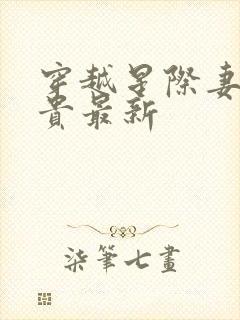 穿越星際妻
貴最新
柒筆七畫